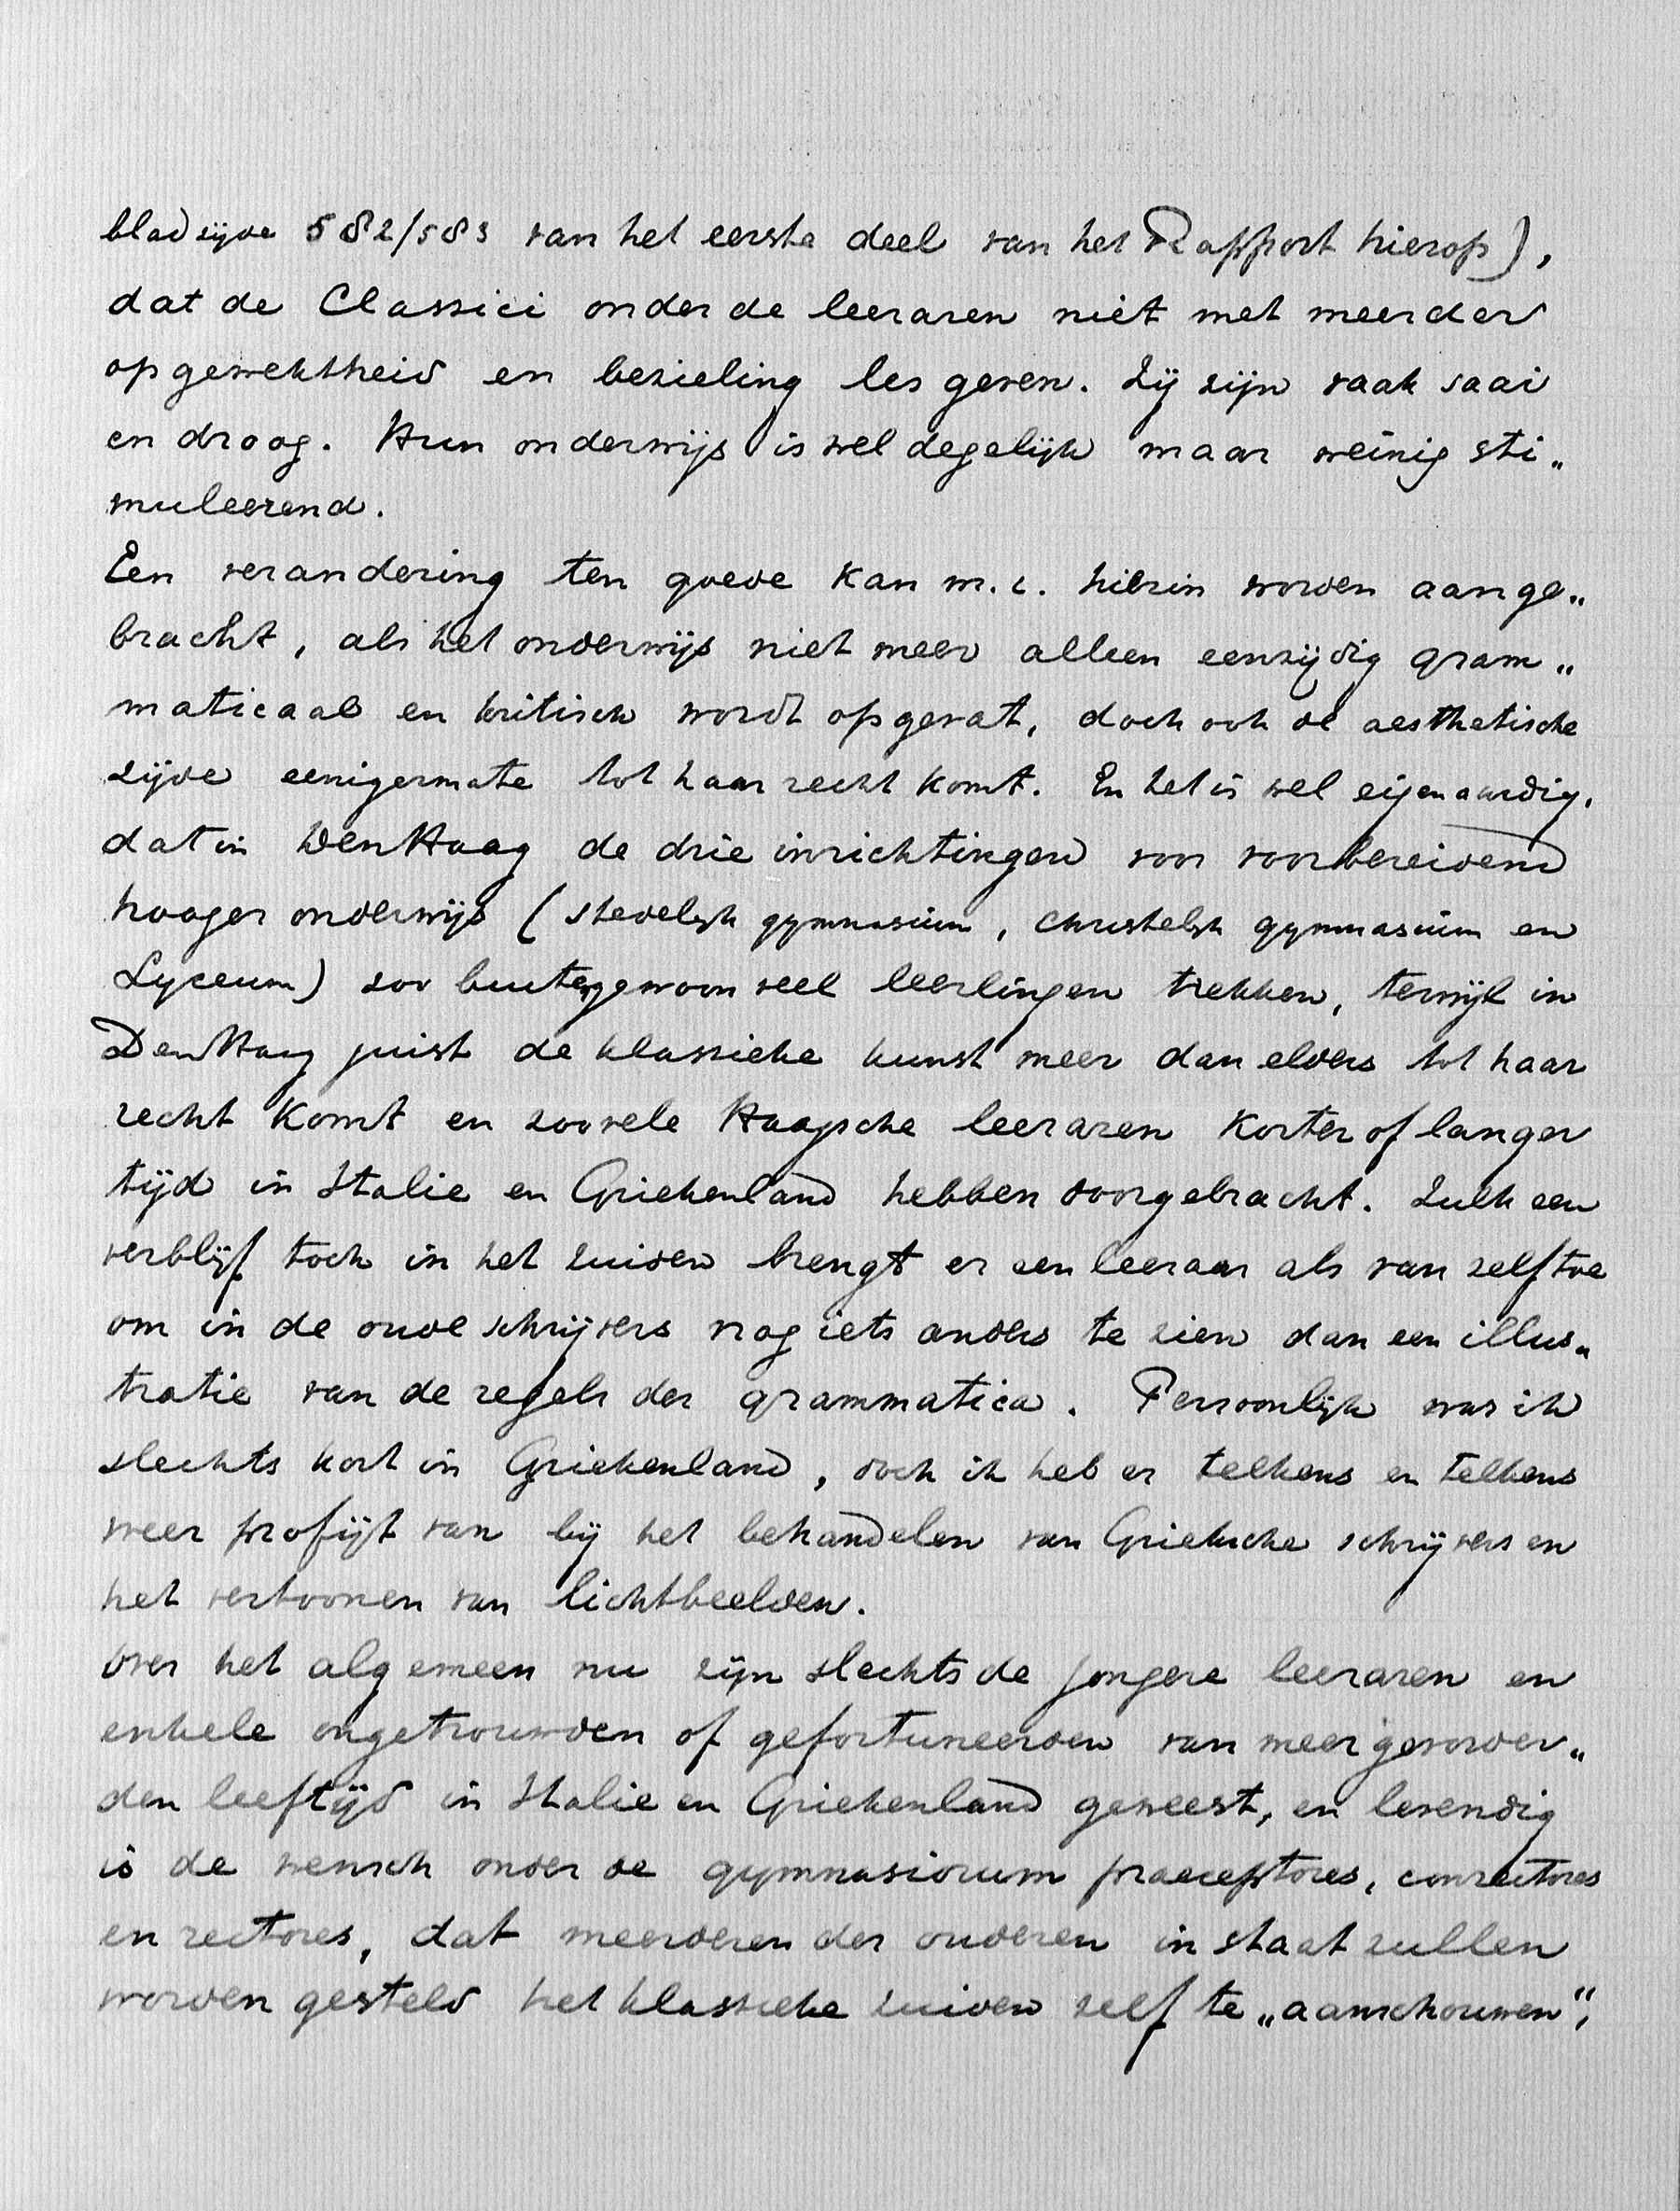 bladzijde 582/583 van het eerste deel van het Rapport hierop),
dat de Classici onder de leeraren niet met meerder
opgewektheid en bezieling les geven. Zij zijn vaak saai
en droog. Hun onderwijs is wel degelijk maar weinig sti„
muleerend.
Een verandering ten goede kan m.i. hierin worden aange„
bracht, als het onderwijs niet meer alleen eenzijdig gram„
maticaal en kritisch wordt opgevat, doch ook de aesthetische
zijde eenigermate tot haar recht komt. En het is wel eigenaardig,
dat in Den Haag de drie inrichtingen voor voorbereidend
hooger onderwijs (stedelijk gymnasium, christelijk gymnasium en
Lyceum) zoo buitengewoon veel leerlingen trekken, terwijl in
Den Haag juist de klassieke kunst meer dan elders tot haar
recht komt en zoovele Haagsche leeraren korter of langer
tijd in Italie en Griekenland hebben doorgebracht. Zulk een
verblijf toch in het zuiden brengt er een leeraar als van zelf toe
om in de oude schrijvers nog iets anders te zien dan een illus„
tratie van de regels der grammatica. Persoonlijk was ik
slechts kort in Griekenland, doch ik heb er telkens en telkens
weer profijt van bij het behandelen van Grieksche schrijvers en
het vertoonen van lichtbeelden.
Over het algemeen nu zijn slechts de jongere leeraren en
enkele ongetrouwden of gefortuneerden van meer gevorder„
den leeftijd in Italie en Griekenland geweest, en levendig
is de wensch onder de gymnasiorum praeceptores, conrectores
en rectores, dat meerderen der ouderen in staat zullen
worden gesteld het klassieke zuiden zelf te „aanschouwen",